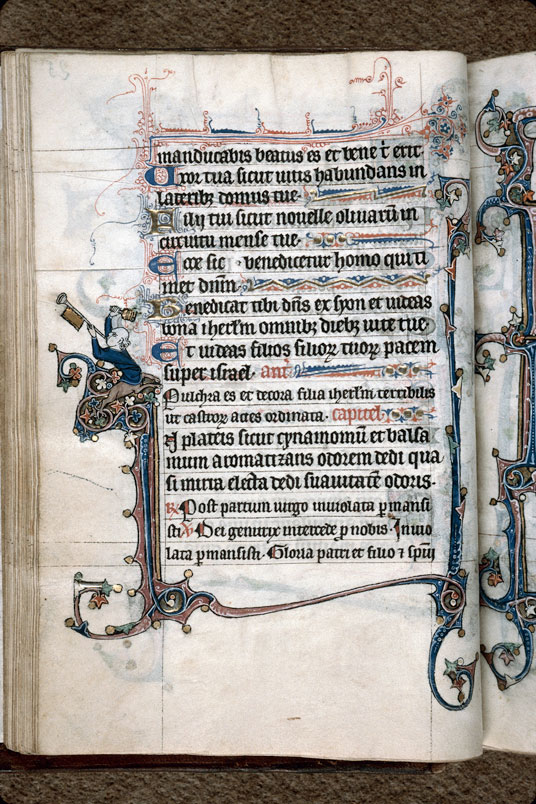 manducabis beatus es et bene t̄ erit
Uxor tua sicut uitis habundans in
laterib; domus tue.
Filij tui sicut nouelle oliuarū in
circuitu mense tue.
Ecce sic benedicetur homo qui ti
met dn̄m.
Benedicat tibi dn̄s ex syon et uideas
bona iherłm omnib; dieb; uite tue.
Et uideas filios filioꝝ tuoꝝ pacem
super israel. an̄
Pulchra es et decora filia iherłm terribilis
ut castroꝝ acies ordinata. capitel̄
In plateis sicut cynamomū et balsa
mum aromatizans odorem dedi qua
si mirra electa dedi suauitatē odoris.
℟. Post partum uirgo inuiolata ꝑmansi
sti. ℣. Dei genitrix intercede ꝓ nobis. Inuio
lata ꝑmansisti. Gloria patri et filio ⁊ spiri